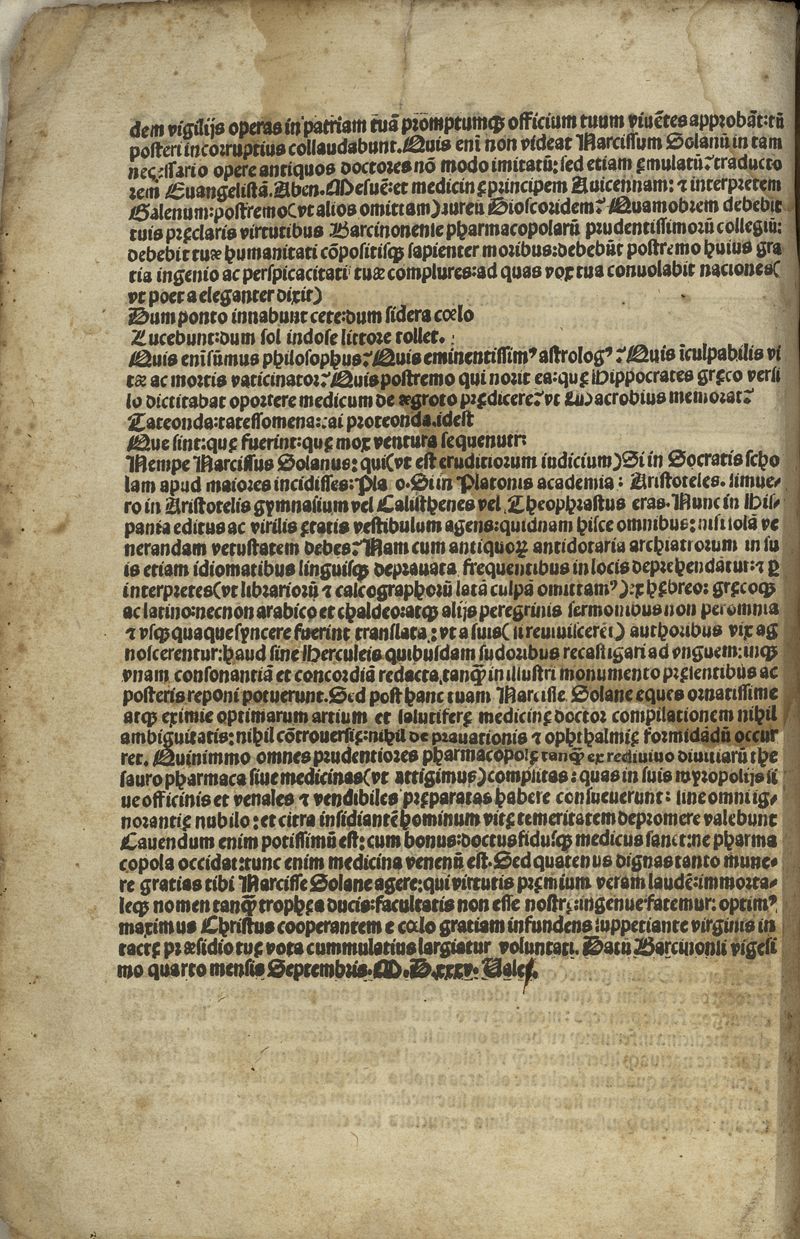 dem vigilijs operas in patriam tuā promptumqꝫ officium tuum viuētes approbāt: tū
posteri incorruptius collaudabunt. Quis enī non videat Narcissum Solanū in tam
necessario opere antiquos doctores nō modo imitatū: sed etiam ęmulatū? traducto
rem Euangelistā. Aben. Mesuē: et medicinę principem Auicennam: ⁊ interpretem
Galenum: postremo (vt alios omittam) Dioscoridem? Quamobrem debebit
tuis pręclaris virtutibus Barcinonense pharmacopolarū prudentissimorū collegiū:
debebit tuæ humanitati cōpositisqꝫ sapienter moribus: debebūt postremo huius gra
tia ingenio ac perspicacitati tuæ complures: ad quas vox tua conuolabit naciones (
vt poeta eleganter dixit)
Dum ponto innabunt cete: dum sidera cœlo
Lucebunt: dum sol indose littore tollet.
Quis enī sūmus philosophus? Quis eminentissimꝰ astrologꝰ? Quis īculpabilis vi
tæ ac mortis vaticinator? Quis postremo qui norit ea: quę Hippocrates gręco versi
lo dictitabat oportere medicum de ægroto prędicere? vt Macrobius memorat?
Tateonda: tatessomena: cai proteonda. idest
Que sint: quę fuerint: quę mox ventura sequenutr:
Nempe Narcissus Solanus: qui (vt est eruditiorum iudicium) Si in Socratis scho
lam apud maiores incidisses: Pla o. Si in Platonis academia: Aristoteles. simue/
ro in Aristotelis gymnasium vel Calisthenes vel Theophrastus eras. Nunc in His/
pania editus ac virilis ętatis vestibulum agens: quidnam hisce omnibus: nisi solā ve
nerandam vetustatem debes? Nam cum antiquoꝝ antidotaria archiatrorum in su
is etiam idiomatibus linguisqꝫ deprauata frequentibus in locis deprehendātur: ⁊ ꝑ
interpretes (vt librariorū ⁊ calcographorū latā culpā omittamꝰ): ex hębreo: gręcoqꝫ
ac latino: necnon arabico et chaldeo: atqꝫ alijs peregrinis sermonibus non per omnia
⁊ vsqꝫ quaque syncere fuerint translata: vt a suis (si reuiuiscerēt) authoribus vix ag
noscerentur: haud sine Herculeis quibusdam sudoribus recastigari ad vnguem: inqꝫ
vnam consonantiā et concordiā redacta, tanqꝫ in illustri monumento pręsentibus ac
posteris reponi potuerunt. Sed post hanc tuam Narcisse Solane eques ornatissime
atqꝫ eximie optimarum artium et salutiferę medicinę doctor compilationem nihil
ambiguitatis: nihil cōtrouersię: nihil de prauationis ⁊ ophthalmię formidādū occur
ret. Quinimmo omnes prudentiores pharmacopolę tanqꝫ ex rediuiuo diuitiarū the
sauro pharmaca siue medicinas (vt attigimus) complitas: quas in suis myropolijs si
ue officinis et venales ⁊ vendibiles pręparatas habere consueuerunt: sine omni ig/
norantię nubilo: et citra insidiantē hominum vitę temeritatem depromere valebunt
Cauendum enim potissimū est: cum bonus: doctus fidusqꝫ medicus sanet: ne pharma
copola occidat: tunc enim medicina venenū est. Sed quatenus dignas tanto mune/
re gratias tibi Narcisse Solane agere: qui virtutis pręmium veram laudē: immorta/
leqꝫ nomen tanqꝫ trophęa ducis: facultatis non esse nostrę: ingenue fatemur: optimꝰ
maximus Christus cooperantem e cœlo gratiam infundens suppetiante virginis in
tactę præsidio tuę vota cummulatius largiatur voluntati. Datū Barcinonii vigesi
mo quarto mensis Septembris. M. D. xxxv. Vale.